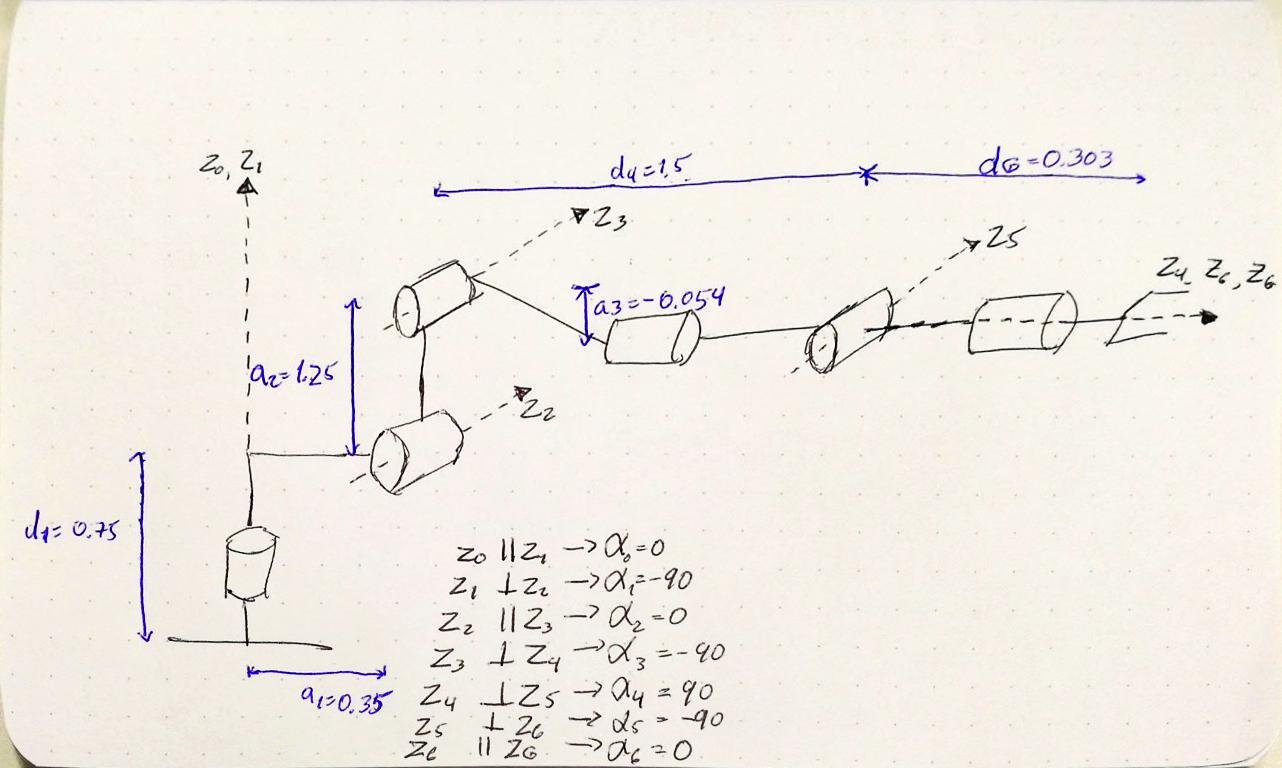 Z0, Z1
d4=1.5
dG=0.303
Z3
Z5
Z4, Z6, ZG
a3=-0.054
a2=1.25
Z2
d1=0.75
a1=0.35
Z0 || Z1 → α0=0
Z1 ⊥ Z2 → α1=-90
Z2 || Z3 → α2=0
Z3 ⊥ Z4 → α3=-90
Z4 ⊥ Z5 → α4=90
Z5 ⊥ Z6 → α5=-90
Z6 || ZG → α6=0